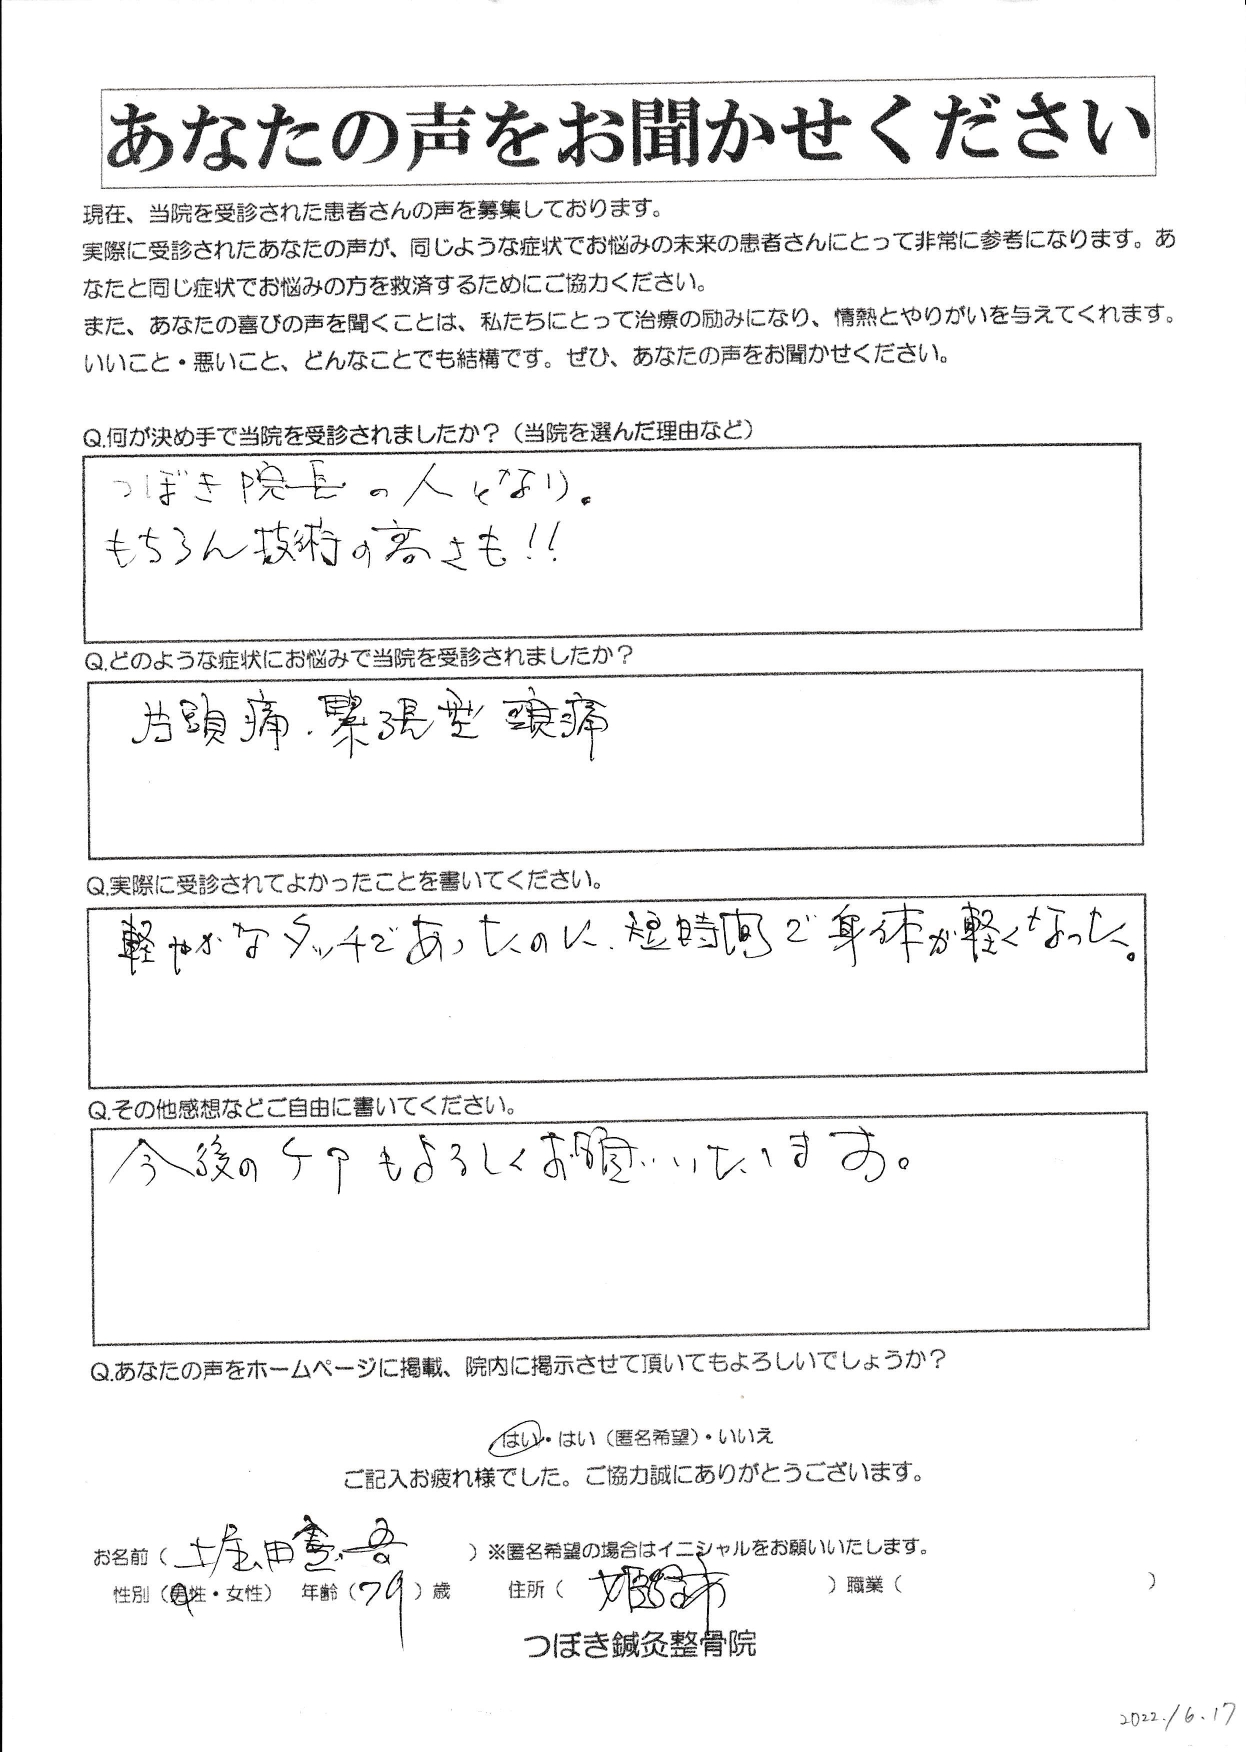 あなたの声をお聞かせください
現在、当院を受診された患者さんの声を募集しております。
実際に受診されたあなたの声が、同じような症状でお悩みの未来の患者さんにとって非常に参考になります。あ
なたと同じ症状でお悩みの方を救済するためにご協力ください。
また、あなたの喜びの声を聞くことは、私たちにとって治療の励みになり、情熱とやりがいを与えてくれます。
いいこと・悪いこと、どんなことでも結構です。ぜひ、あなたの声をお聞かせください。
Q.何が決め手で当院を受診されましたか？（当院を選んだ理由など）
つぼき院長の人となり。
もちろん技術の高さも!!
Q.どのような症状にお悩みで当院を受診されましたか？
片頭痛.緊張型頭痛
Q.実際に受診されてよかったことを書いてください。
軽やかなタッチであったのに、短時間で身体が軽くなった。
Q.その他感想などご自由に書いてください。
今後のケアもよろしくお願いいたします。
Q.あなたの声をホームページに掲載、院内に掲示させて頂いてもよろしいでしょうか？
はい・はい（匿名希望）・いいえ
ご記入お疲れ様でした。ご協力誠にありがとうございます。
お名前（堀田憲吾）※匿名希望の場合はイニシャルをお願いいたします。
性別（男性・女性） 年齢（79）歳 住所（姫路市）職業（ ）
つぼき鍼灸整骨院
2022./6.17